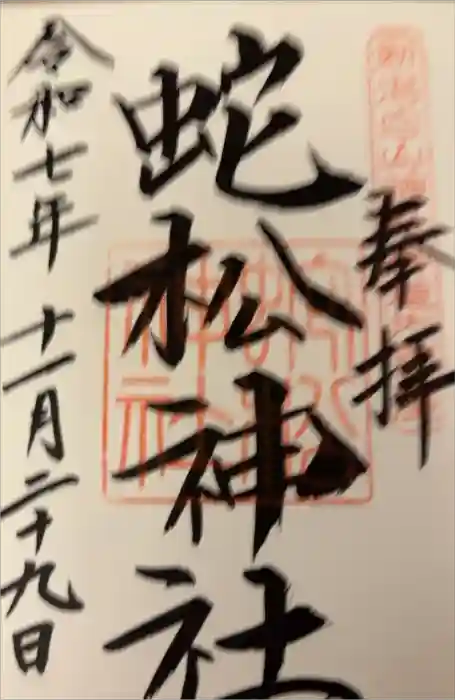 奉拝
蛇松神社
令和七年 十一月二十九日